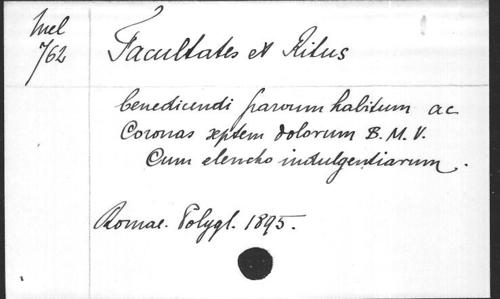 Mel
762
Facultates et Ritus
benedicendi parvum habitum ac
Coronas septem dolorum B. M. V.
Cum elencho indulgentiarum.
Romae. Polygl. 1895.